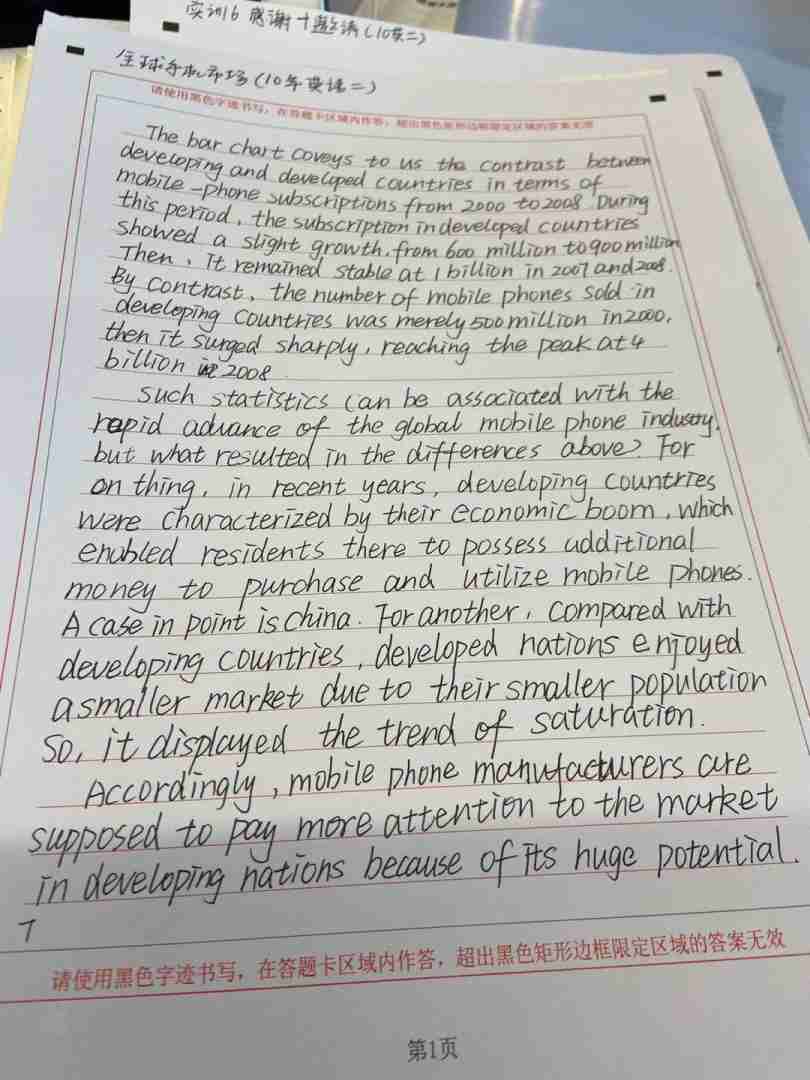 实训6 感谢+邀请(10英二)
全球手机市场(10年英语二)
请使用黑色字迹书写，在答题卡区域内作答，超出黑色矩形边框限定区域的答案无效
The bar chart coveys to us the contrast between
developing and developed countries in terms of
mobile-phone subscriptions from 2000 to 2008. During
this period, the subscription in developed countries
showed a slight growth, from 600 million to 900 million
Then, it remained stable at 1 billion in 2007 and 2008.
By contrast, the number of mobile phones sold in
developing countries was merely 500 million in 2000,
then it surged sharply, reaching the peak at 4
billion in 2008
Such statistics can be associated with the
rapid advance of the global mobile phone industry,
but what resulted in the differences above? For
on thing, in recent years, developing countries
were characterized by their economic boom, which
enabled residents there to possess additional
money to purchase and utilize mobile phones.
A case in point is china. For another, compared with
developing countries, developed nations enjoyed
a smaller market due to their smaller population
So, it displayed the trend of saturation.
Accordingly, mobile phone manufacturers are
supposed to pay more attention to the market
in developing nations because of its huge potential.
7
请使用黑色字迹书写，在答题卡区域内作答，超出黑色矩形边框限定区域的答案无效
第1页